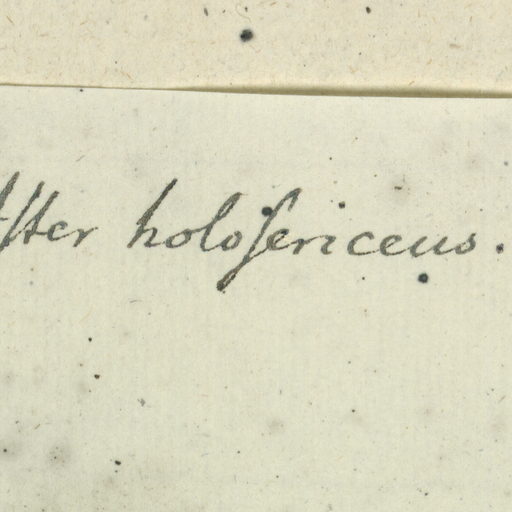 Aster holosericeus.